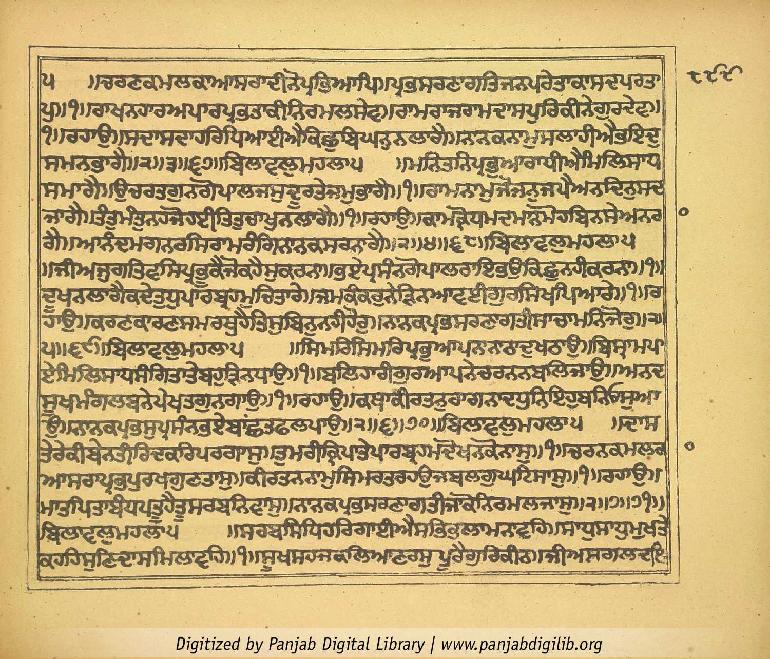 ੫ ॥ਚਰਣਕਮਲਕਾਆਸਰਾਦੀਨੋਪ੍ਰਭਿਆਪਿ॥ਪ੍ਰਭਸਰਣਾਗਤਿਜਨਪਰੇਤਾਕਾਸਦਪਰਤਾ
ਪੁ॥੧॥ਰਾਖਨਹਾਰਅਪਾਰਪ੍ਰਭਤਾਕੀਨਿਰਮਲਸੇਵ॥ਰਾਮਰਾਜਰਾਮਦਾਸਪੁਰਿਕੀਨੇਗੁਰਦੇਵ॥
੧॥ਰਹਾਉ॥ਸਦਾਸਦਾਹਰਿਧਿਆਈਐਕਿਛੁਬਿਘਨੁਨਲਾਗੈ॥ਨਾਨਕਨਾਮੁਸਲਾਹੀਐਭਇਦੁ
ਸਮਨਭਾਗੈ॥੨॥੩॥੬੭॥ਬਿਲਾਵਲੁਮਹਲਾ੫ ॥ਮਨਿਤਨਿਪ੍ਰਭੁਆਰਾਧੀਐਮਿਲਿਸਾਧ
ਸਮਾਗੈ॥ਉਚਰਤਗੁਨਗੋਪਾਲਜਸੁਦੂਰਤੇਜਮੁਭਾਗੈ॥੧॥ਰਾਮਨਾਮੁਜੋਜਨੁਜਪੈਅਨਦਿਨੁਸਦ
ਜਾਗੈ॥ਤੰਤੁਮੰਤੁਨਹਜੋਹਈਤਿਤੁਚਾਖੁਨਲਾਗੈ॥੧॥ਰਹਾਉ॥ਕਾਮਕ੍ਰੋਧਮਦਮਾਨਮੋਹਬਿਨਸੇਅਨਰਾ
ਗੈ॥ਆਨੰਦਮਗਨਰਸਿਰਾਮਰੰਗਿਨਾਨਕਸਰਨਾਗੈ॥੨॥੪॥੬੮॥ਬਿਲਾਵਲੁਮਹਲਾ੫
॥ਜੀਅਜੁਗਤਿਵਸਿਪ੍ਰਭੂਕੈਜੋਕਹੈਸੁਕਰਨਾ॥ਭਏਪ੍ਰਸੰਨਗੋਪਾਲਰਾਇਭਉਕਿਛੁਨਹੀਕਰਨਾ॥੧॥
ਦੂਖੁਨਲਾਗੈਕਦੇਤੁਧੁਪਾਰਬ੍ਰਹਮੁਚਿਤਾਰੇ॥ਜਮਕੰਕਰੁਨੇੜਿਨਆਵਈਗੁਰਸਿਖਪਿਆਰੇ॥੧॥ਰ
ਹਾਉ॥ਕਰਣਕਾਰਣਸਮਰਥੁਹੈਤਿਸੁਬਿਨੁਨਹੀਹੋਰੁ॥ਨਾਨਕਪ੍ਰਭਸਰਣਾਗਤੀਸਾਚਾਮਨਿਜੋਰੁ॥੨॥
੫॥੬੯॥ਬਿਲਾਵਲੁਮਹਲਾ੫ ॥ਸਿਮਰਿਸਿਮਰਿਪ੍ਰਭੁਆਪਨਾਨਾਠਾਦੁਖਠਾਉ॥ਬਿਸ੍ਰਾਮਪਾ
ਏਮਿਲਿਸਾਧਸੰਗਿਤਾਤੇਬਹੁੜਿਨਧਾਉ॥੧॥ਬਲਿਹਾਰੀਗੁਰਆਪਨੇਚਰਨਨਬਲਿਜਾਉ॥ਅਨਦ
ਸੁਖਮੰਗਲਬਨੇਪੇਖਤਗੁਨਗਾਉ॥੧॥ਰਹਾਉ॥ਕਥਾਕੀਰਤਨੁਰਾਗਨਾਦਧੁਨਿਇਹੁਬਨਿਓਸੁਆ
ਉ॥ਨਾਨਕਪ੍ਰਭਸੁਪ੍ਰਸੰਨਭਏਬਾਂਛਤਫਲਪਾਉ॥੨॥੬॥੭੦॥ਬਿਲਾਵਲੁਮਹਲਾ੫ ॥ਦਾਸ
ਤੇਰੇਕੀਬੇਨਤੀਰਿਦਕਰਿਪਰਗਾਸੁ॥ਤੁਮਰੀਕ੍ਰਿਪਾਤੇਪਾਰਬ੍ਰਹਮਦੋਖਨਕੋਨਾਸੁ॥੧॥ਚਰਨਕਮਲਕਾ
ਆਸਰਾਪ੍ਰਭਪੁਰਖਗੁਣਤਾਸੁ॥ਕੀਰਤਨਨਾਮੁਸਿਮਰਤਰਹਉਜਬਲਗੁਘਟਿਸਾਸੁ॥੧॥ਰਹਾਉ॥
ਮਾਤਪਿਤਾਬੰਧਪਤੂਹੈਤੂਸਰਬਨਿਵਾਸੁ॥ਨਾਨਕਪ੍ਰਭਸਰਣਾਗਤੀਜਾਕੋਨਿਰਮਲਜਾਸੁ॥੨॥੭॥੭੧॥
ਬਿਲਾਵਲੁਮਹਲਾ੫ ॥ਸਰਬਸਿਧਿਹਰਿਗਾਈਐਸਭਿਭਲਾਮਨਾਵਹਿ॥ਸਾਧੁਸਾਧੁਮੁਖਤੇ
ਕਹਹਿਸੁਣਿਦਾਸਮਿਲਾਵਹਿ॥੧॥ਸੂਖਸਹਜਕਲਿਆਣਰਸ ਪੂਰੈਗੁਰਿਕੀਨ॥ਜੀਅਸਗਲਦਇ
Digitized by Panjab Digital Library | www.panjabdigilib.org